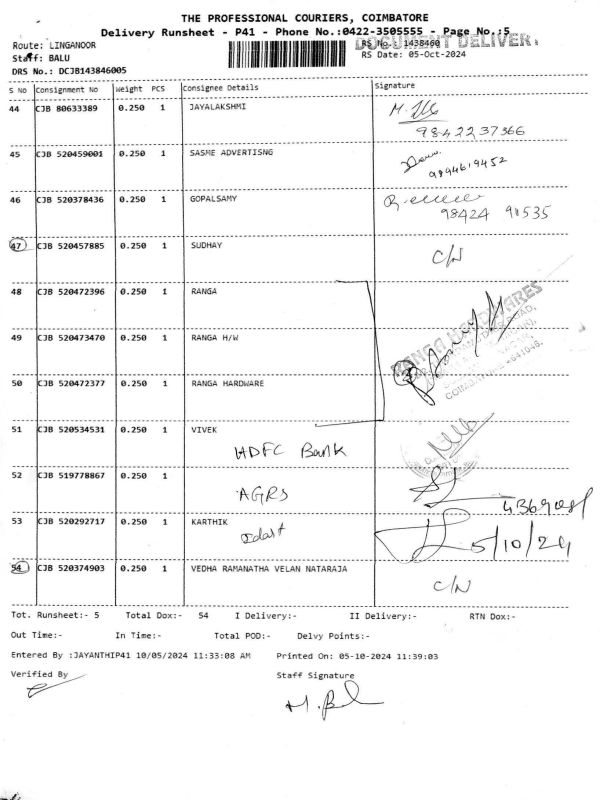 THE PROFESSIONAL COURIERS, COIMBATORE
Delivery Runsheet - P41 - Phone No.:0422-3505555 - Page No.:5
DOCUMENT DELIVER
Route: LINGANOOR
RS No.: 1438460
Staff: BALU
RS Date: 05-Oct-2024
DRS No.: DCJB143846005
S No Consignment No Weight PCS Consignee Details Signature
44 CJB 80633389 0.250 1 JAYALAKSHMI
9842237366
45 CJB 520459001 0.250 1 SASME ADVERTISNG
9894619452
46 CJB 520378436 0.250 1 GOPALSAMY
98424 90535
47 CJB 520457885 0.250 1 SUDHAY
C/N
48 CJB 520472396 0.250 1 RANGA
RANGA HARDWARES
49 CJB 520473470 0.250 1 RANGA H/W
50 CJB 520472377 0.250 1 RANGA HARDWARE
51 CJB 520534531 0.250 1 VIVEK
HDFC Bank
52 CJB 519778867 0.250 1
AGRS
53 CJB 520292717 0.250 1 KARTHIK
5/10/24
54 CJB 520374903 0.250 1 VEDHA RAMANATHA VELAN NATARAJA
C/N
Tot. Runsheet:- 5 Total Dox:- 54 I Delivery:- II Delivery:- RTN Dox:-
Out Time:- In Time:- Total POD:- Delvy Points:-
Entered By :JAYANTHIP41 10/05/2024 11:33:08 AM Printed On: 05-10-2024 11:39:03
Verified By Staff Signature